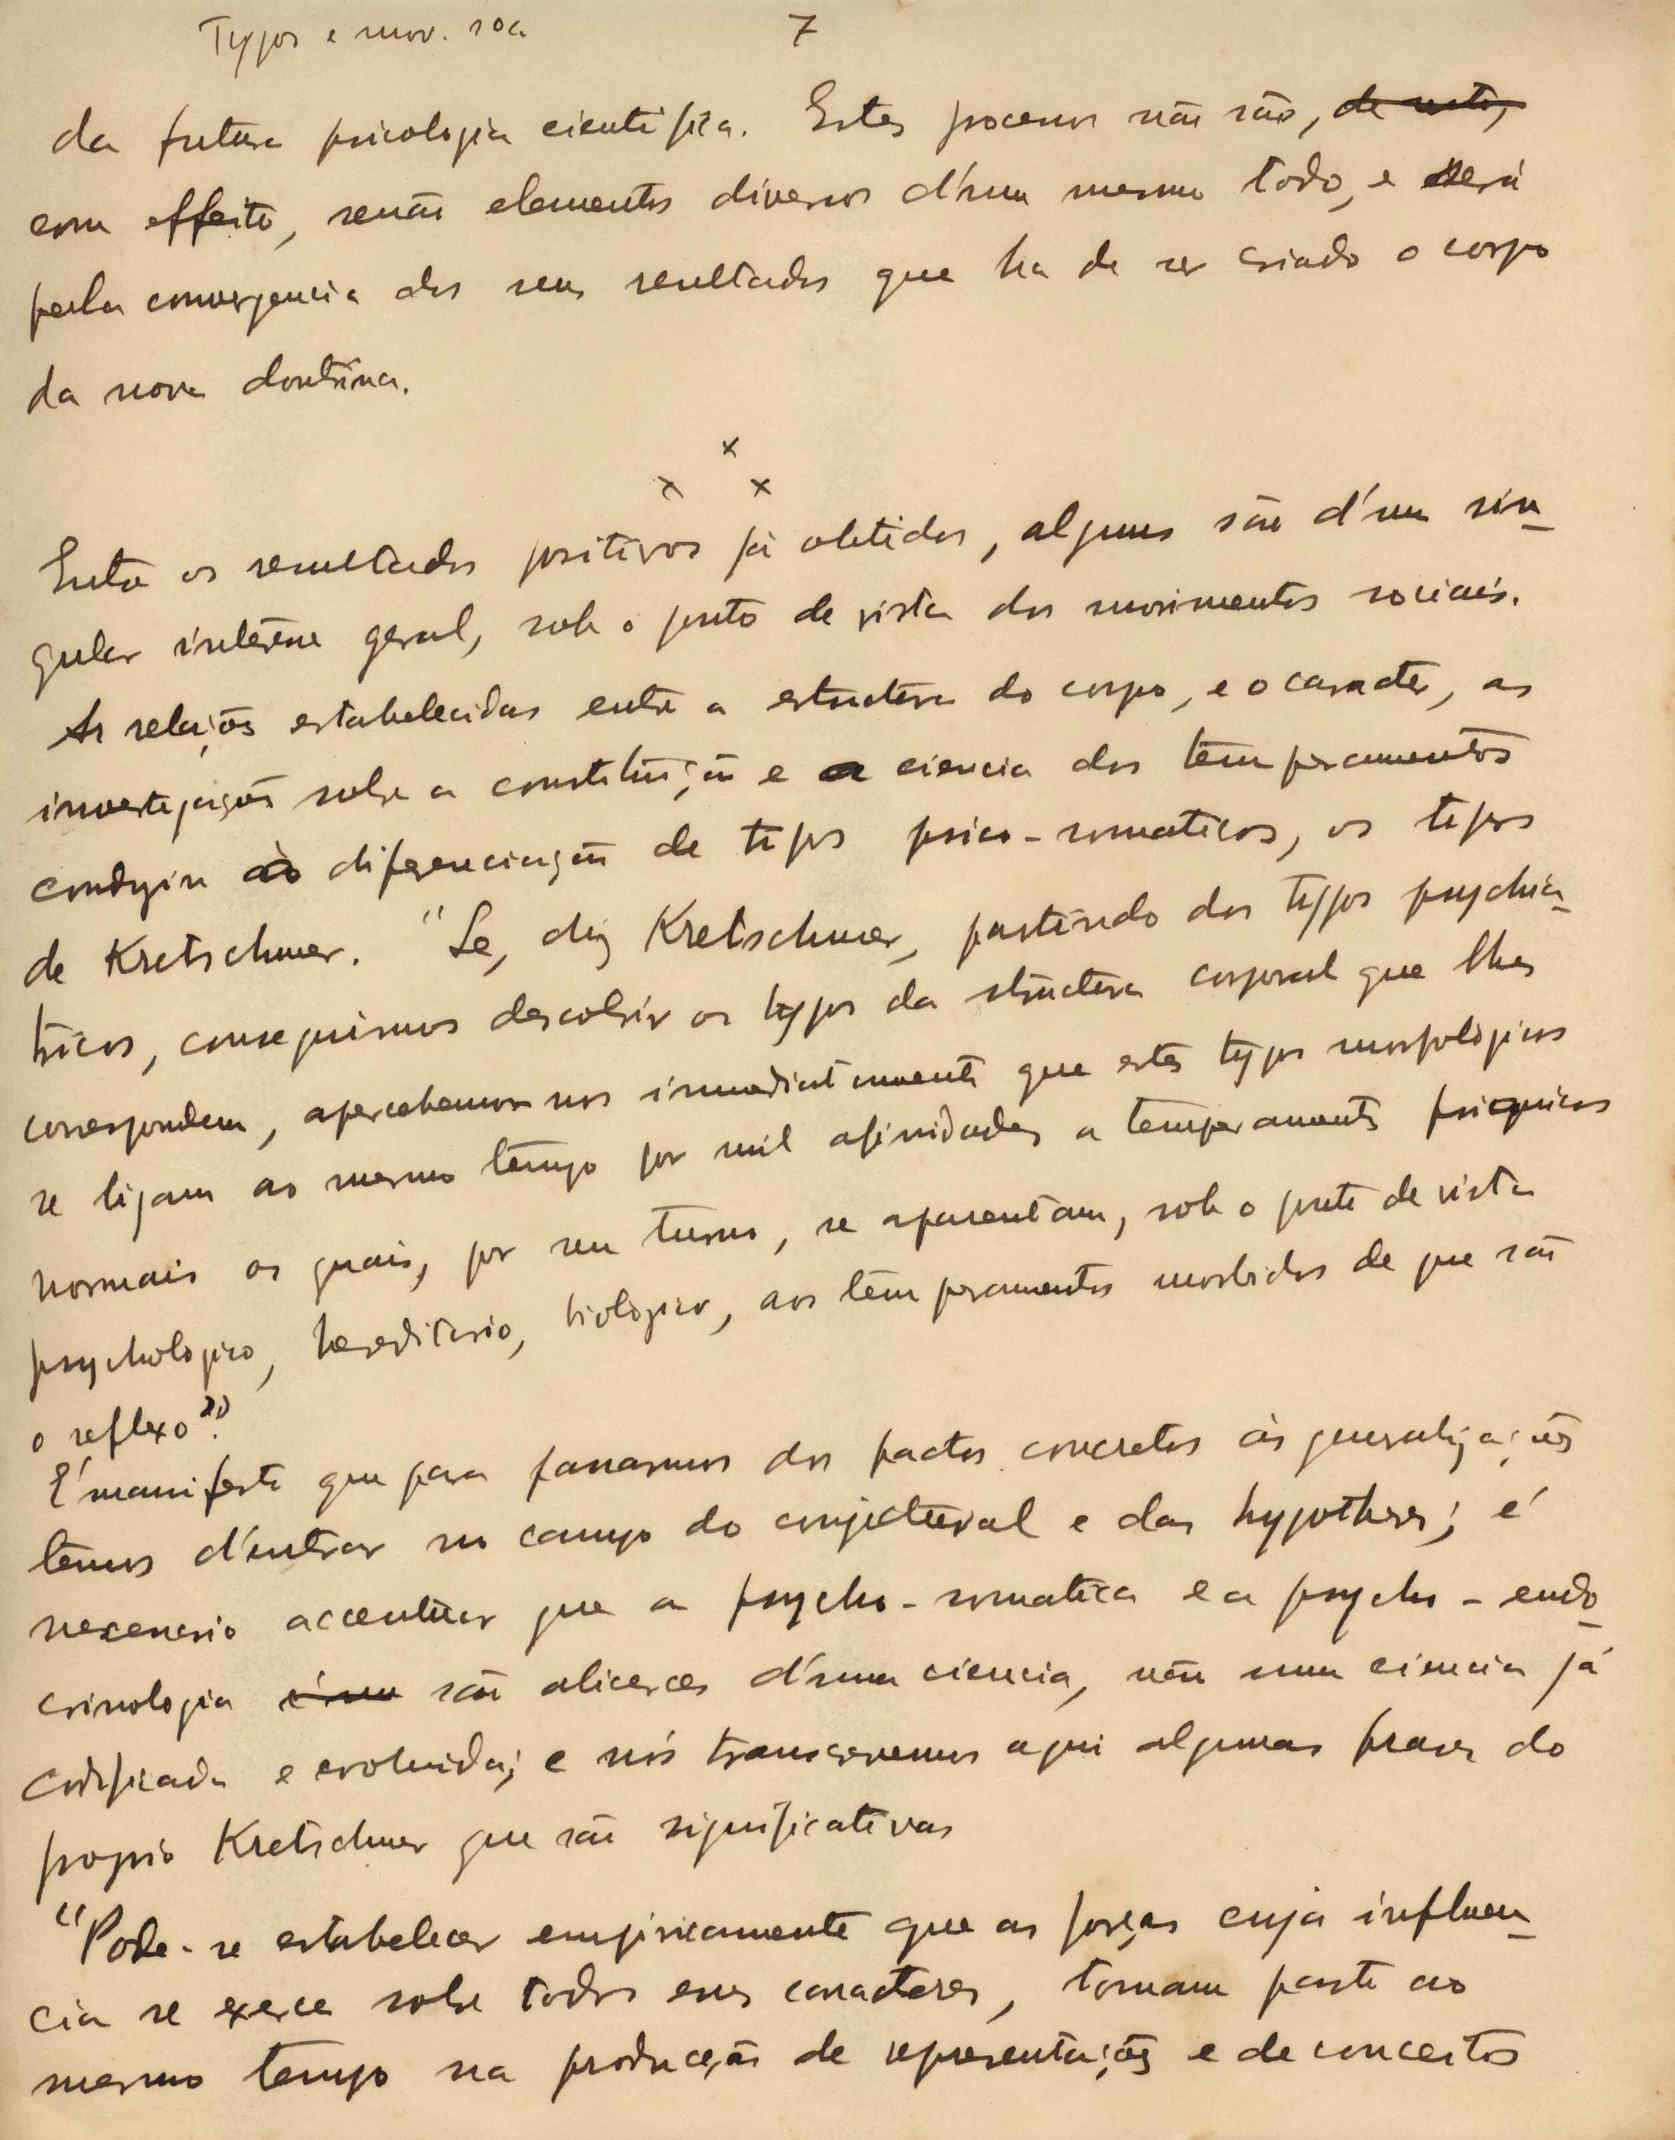 Typos e mov. soc. 7
da futura psicologia cientifica. Estes processos não são, de resto,
com effeito, senão elementos diversos d'um mesmo todo, e será
pela convergencia dos seus resultados que ha de ser criado o corpo
da nova doutrina.
x
x x
Entre os resultados positivos já obtidos, alguns são d'um sin-
gular interesse geral, sob o ponto de vista dos movimentos sociais.
As relações estabelecidas entre a estructura do corpo, e o caracter, as
investigações sobre a constituição e a ciencia dos temperamentos
conduzin à diferenciação de tipos psico-somaticos, os tipos
de Kretschmer. "Se, diz Kretschmer, partindo dos typos psychia-
tricos, conseguirmos descobrir os typos da structura corporal que lhes
correspondem, apercebemos nos immediatamente que estes typos morfologicos
se ligam ao mesmo tempo por mil afinidades a temperamentos psiquicos
normais os quais, por seu turno, se aparentam, sob o ponto de vista
psychologico, hereditario, biologico, aos temperamentos morbidos de que são
o reflexo".
É manifesto que para passarmos dos factos concretos às generalizações
temos d'entrar no campo do conjectural e das hypotheses; é
necessario accentuar que a psycho-somatica e a psycho-endo-
crinologia são alicerces d'uma ciencia, não uma ciencia já
codificada e evoluida; e nós transcrevemos aqui algumas frases do
proprio Kretschmer que são significativas
"Pode-se estabelecer empiricamente que as forças cuja influen-
cia se exerce sobre todos esses caracteres, tomam parte ao
mesmo tempo na producção de representações e de conceitos